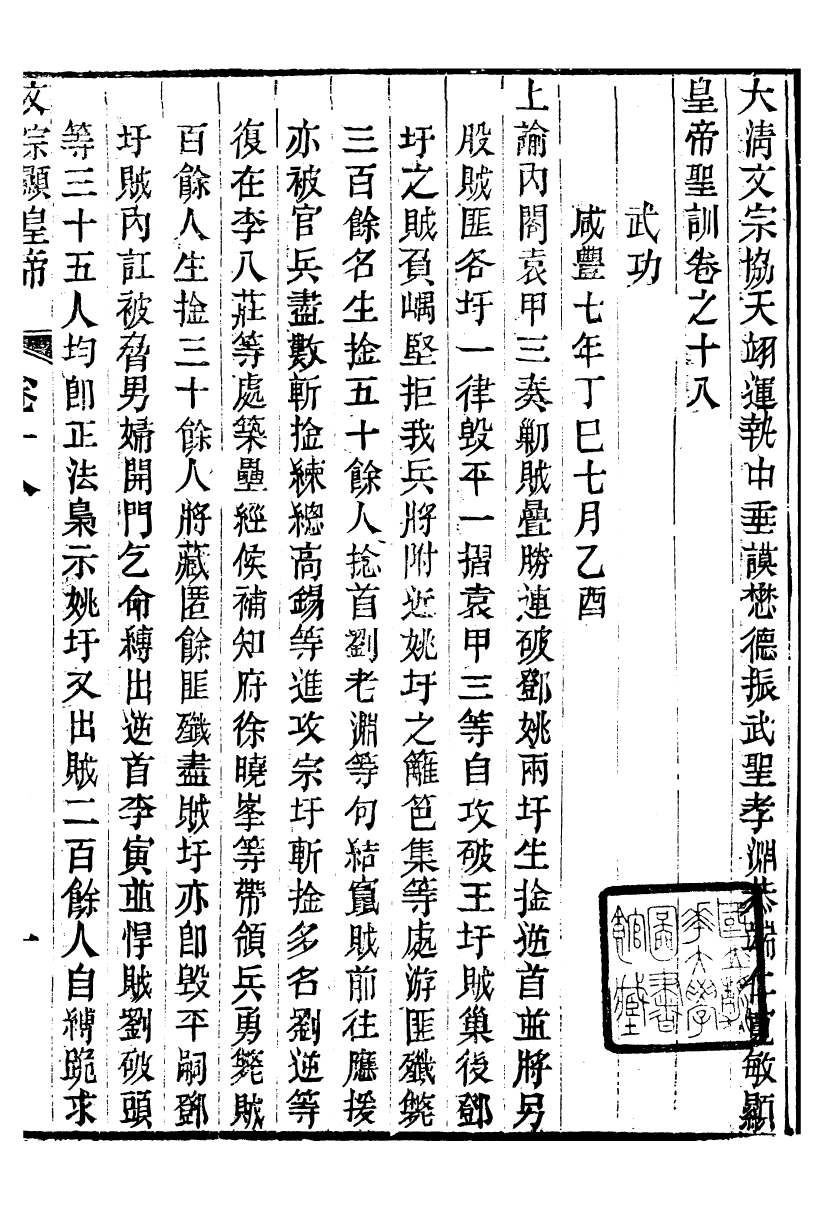 大清文宗協天翊運執中垂謨懋德振武聖孝淵恭端仁寬敏顯
皇帝聖訓卷之十八
武功
咸豐七年丁巳七月乙酉
上諭內閣袁甲三奏剿賊疊勝連破鄧姚兩圩生擒逆首並將另
股賊匪各圩一律毀平一摺袁甲三等自攻破王圩賊巢後鄧
圩之賊負嵎堅拒我兵將附近姚圩之雞笆集等處游匪殲斃
三百餘名生擒五十餘人捻首劉老淵等句結竄賊前往應援
亦被官兵盡數斬擒練總高錫等進攻宗圩斬擒多名劉逆等
復在李八莊等處築壘經候補知府徐曉峯等帶領兵勇斃賊
百餘人生擒三十餘人將藏匿餘匪殲盡賊圩亦即毀平嗣鄧
圩賊內訌被脅男婦開門乞命縛出逆首李寅並悍賊劉破頭
等三十五人均即正法梟示姚圩又出賊二百餘人自縛跪求
文宗顯皇帝 卷十八 一
國立清華大學圖書館藏